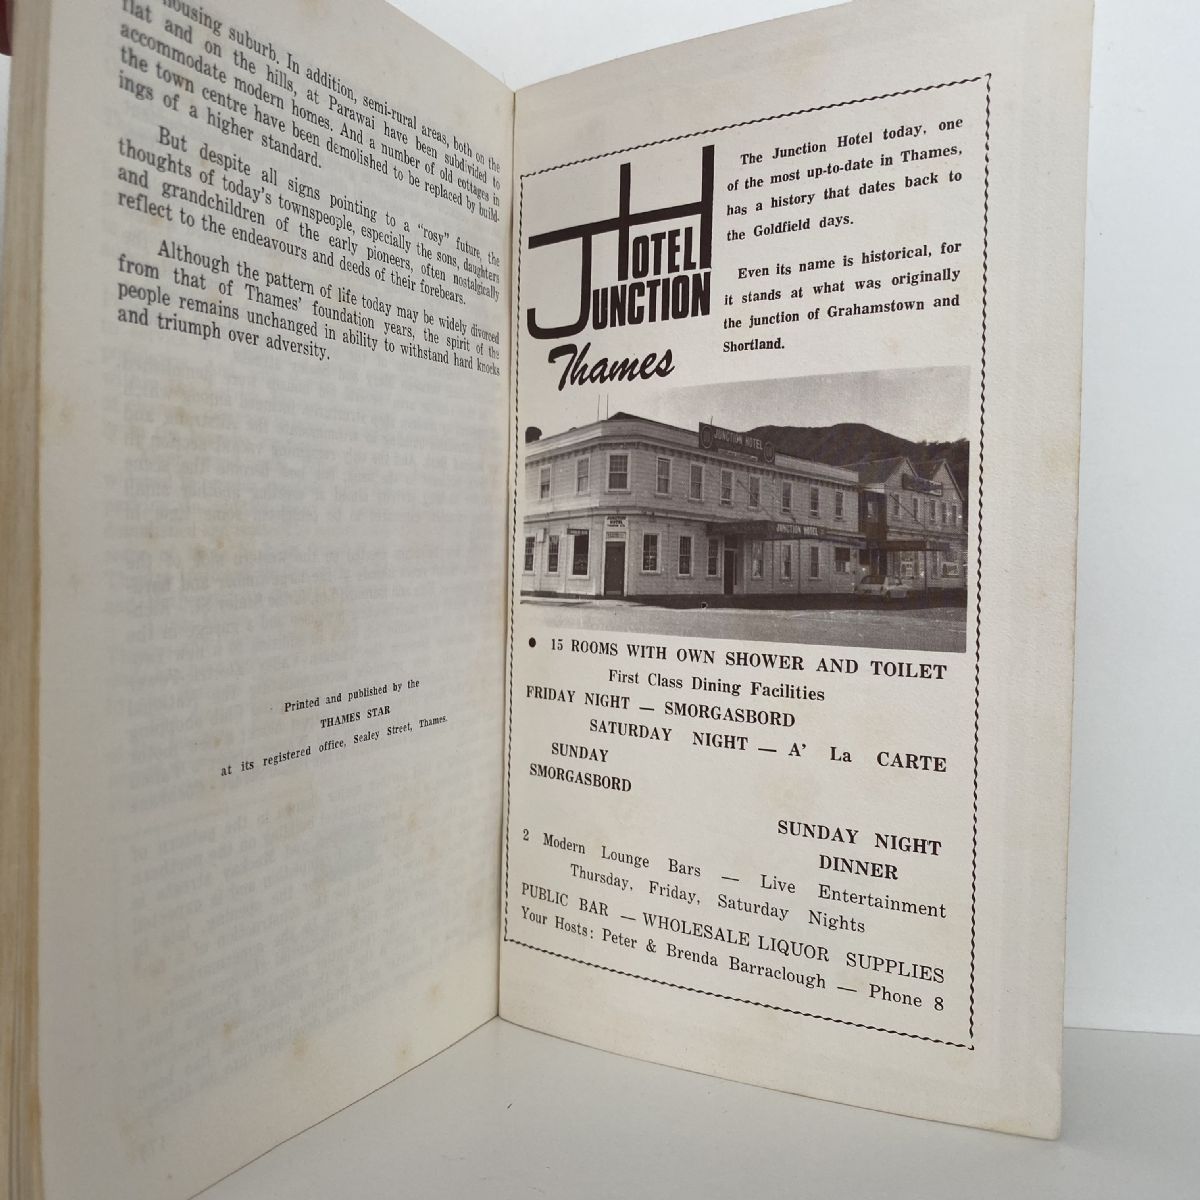 housing suburb. In addition, semi-rural areas, both on the
flat and on the hills, at Parawai have been subdivided to
accommodate modern homes. And a number of old cottages in
the town centre have been demolished to be replaced by build-
ings of a higher standard.
But despite all signs pointing to a "rosy" future, the
thoughts of today's townspeople, especially the sons, daughters
and grandchildren of the early pioneers, often nostalgically
reflect to the endeavours and deeds of their forebears.
Although the pattern of life today may be widely divorced
from that of Thames' foundation years, the spirit of the
people remains unchanged in ability to withstand hard knocks
and triumph over adversity.
Printed and published by the
THAMES STAR
at its registered office, Sealey Street, Thames.
HOTEL
JUNCTION
Thames
The Junction Hotel today, one
of the most up-to-date in Thames,
has a history that dates back to
the Goldfield days.
Even its name is historical, for
it stands at what was originally
the junction of Grahamstown and
Shortland.
JUNCTION HOTEL
JUNCTION
HOTEL
JUNCTION HOTEL
● 15 ROOMS WITH OWN SHOWER AND TOILET
First Class Dining Facilities
FRIDAY NIGHT — SMORGASBORD
SATURDAY NIGHT — A' La CARTE
SUNDAY
SMORGASBORD
SUNDAY NIGHT
DINNER
2 Modern Lounge Bars — Live Entertainment
Thursday, Friday, Saturday Nights
PUBLIC BAR — WHOLESALE LIQUOR SUPPLIES
Your Hosts: Peter & Brenda Barraclough — Phone 8